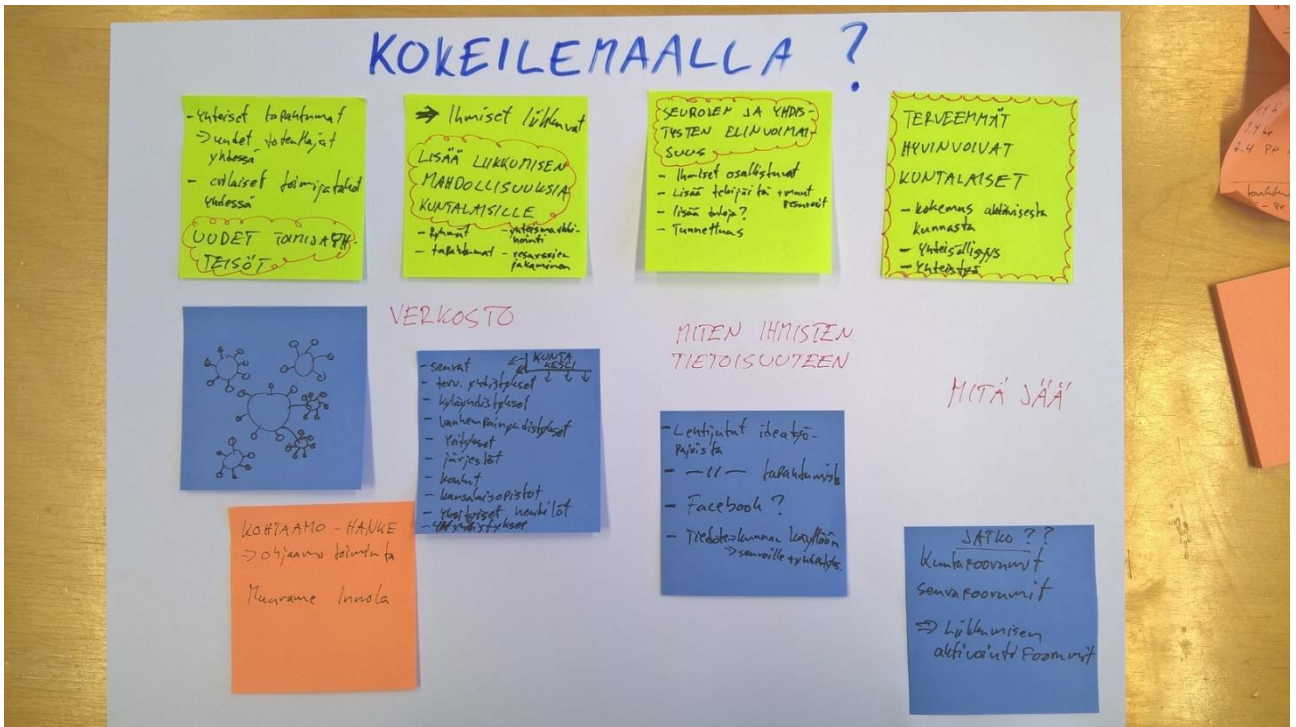 KOKEILEMAALLA ?
- Yhteiset tapahtumat
→ uudet toteuttajat
yhdessä
- erilaiset toimijatahot
yhdessä
UUDET TOIMIJAYH-
TEISÖT
⇒ Ihmiset liikkuvat
LISÄÄ LIIKKUMISEN
MAHDOLLISUUKSIA
KUNTALAISILLE
- Ryhmät
- tapahtumat
- yhteismarkki-
nointi
- resurssien
jakaminen
SEUROJEN JA YHDIS-
TYSTEN ELINVOIMAI-
SUUS
- Ihmiset osallistuvat
- Lisää tekijöitä + muut
resurssit
- lisää tuloja?
- Tunnettuus
TERVEEMMÄT
HYVINVOIVAT
KUNTALAISET
- kokemus aktiivisesta
kunnasta
- Yhteisöllisyys
- Yhteistyö
VERKOSTO
KUNTA
KESKI
- seurat
- terv. yhdistykset
- kyläyhdistykset
- vanhempainyhdistykset
- Yritykset
- järjestöt
- koulut
- kansalaisopistot
- Yksityiset henkilöt
KOHTAAMO - HANKE
→ ohjaamo toiminta
Muurame Innola
MITEN IHMISTEN
TIETOISUUTEEN
- Lehtijutut ideatyö-
pajoista
- —11— tapahtumista
- Facebook ?
- Tiedote kunnan käyttöön
→ seuroille + yhdistys.
MITÄ JÄÄ
JATKO ??
Kuntafoorumit
seurafoorumit
⇒ Liikkumisen
aktivointi foorumit